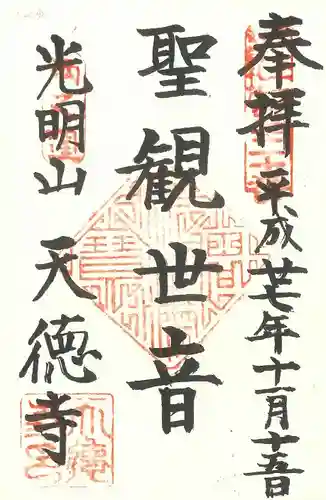 奉拝 平成廿七年十一月十五日
聖観世音
光明山 天徳寺